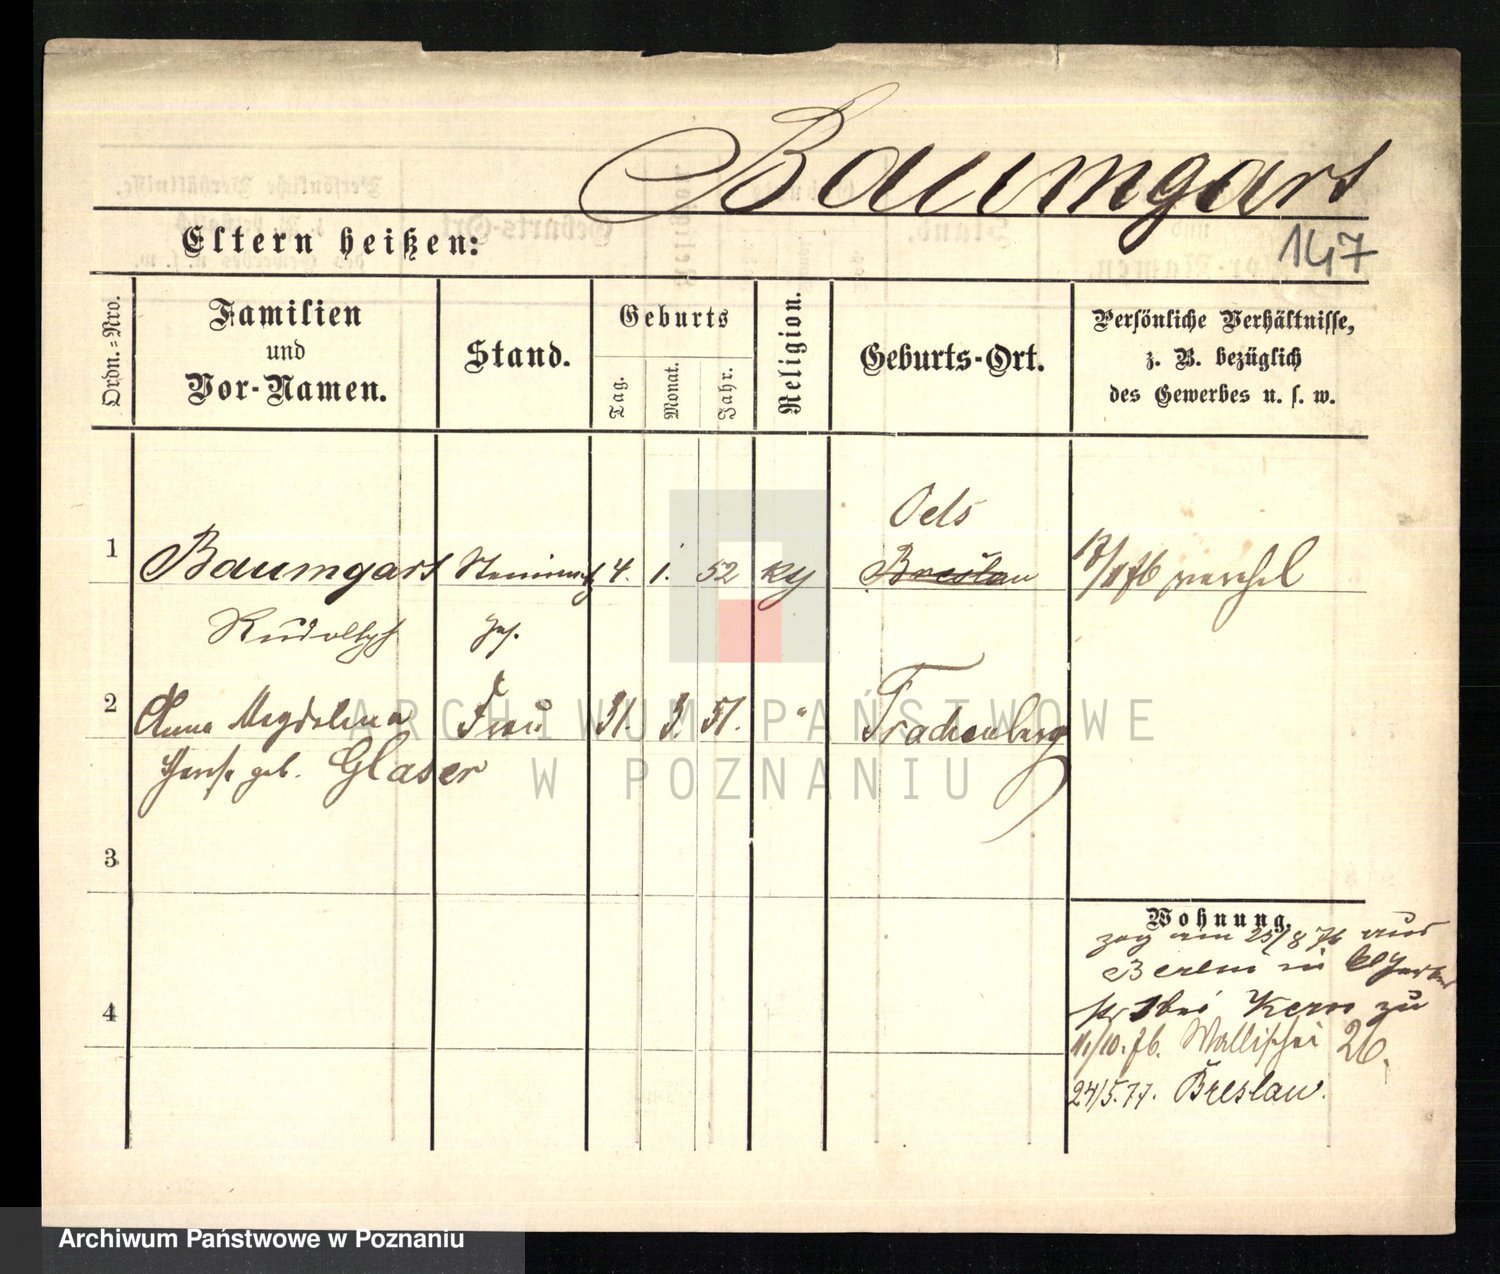 Baumgart
147
Eltern heißen:
Ordn.=Nro.
Familien
und
Vor-Namen.
Stand.
Geburts
Tag.
Monat.
Jahr.
Religion.
Geburts-Ort.
Persönliche Verhältnisse,
z. B. bezüglich
des Gewerbes u. s. w.
Oels
1 Baumgart 4. 1. 52 Breslau
Rudolph
2 Anna Magdalena Frau 31. 3. 51. " Trachenberg
geb. Glaser
3
Wohnung.
zog am 25/8 76 aus
Berlin in
4
bei Kern zu
11/10. 76. Wallischei 26.
24/5. 77. Breslau.
ARCHIWUM PAŃSTWOWE
W POZNANIU
Archiwum Państwowe w Poznaniu